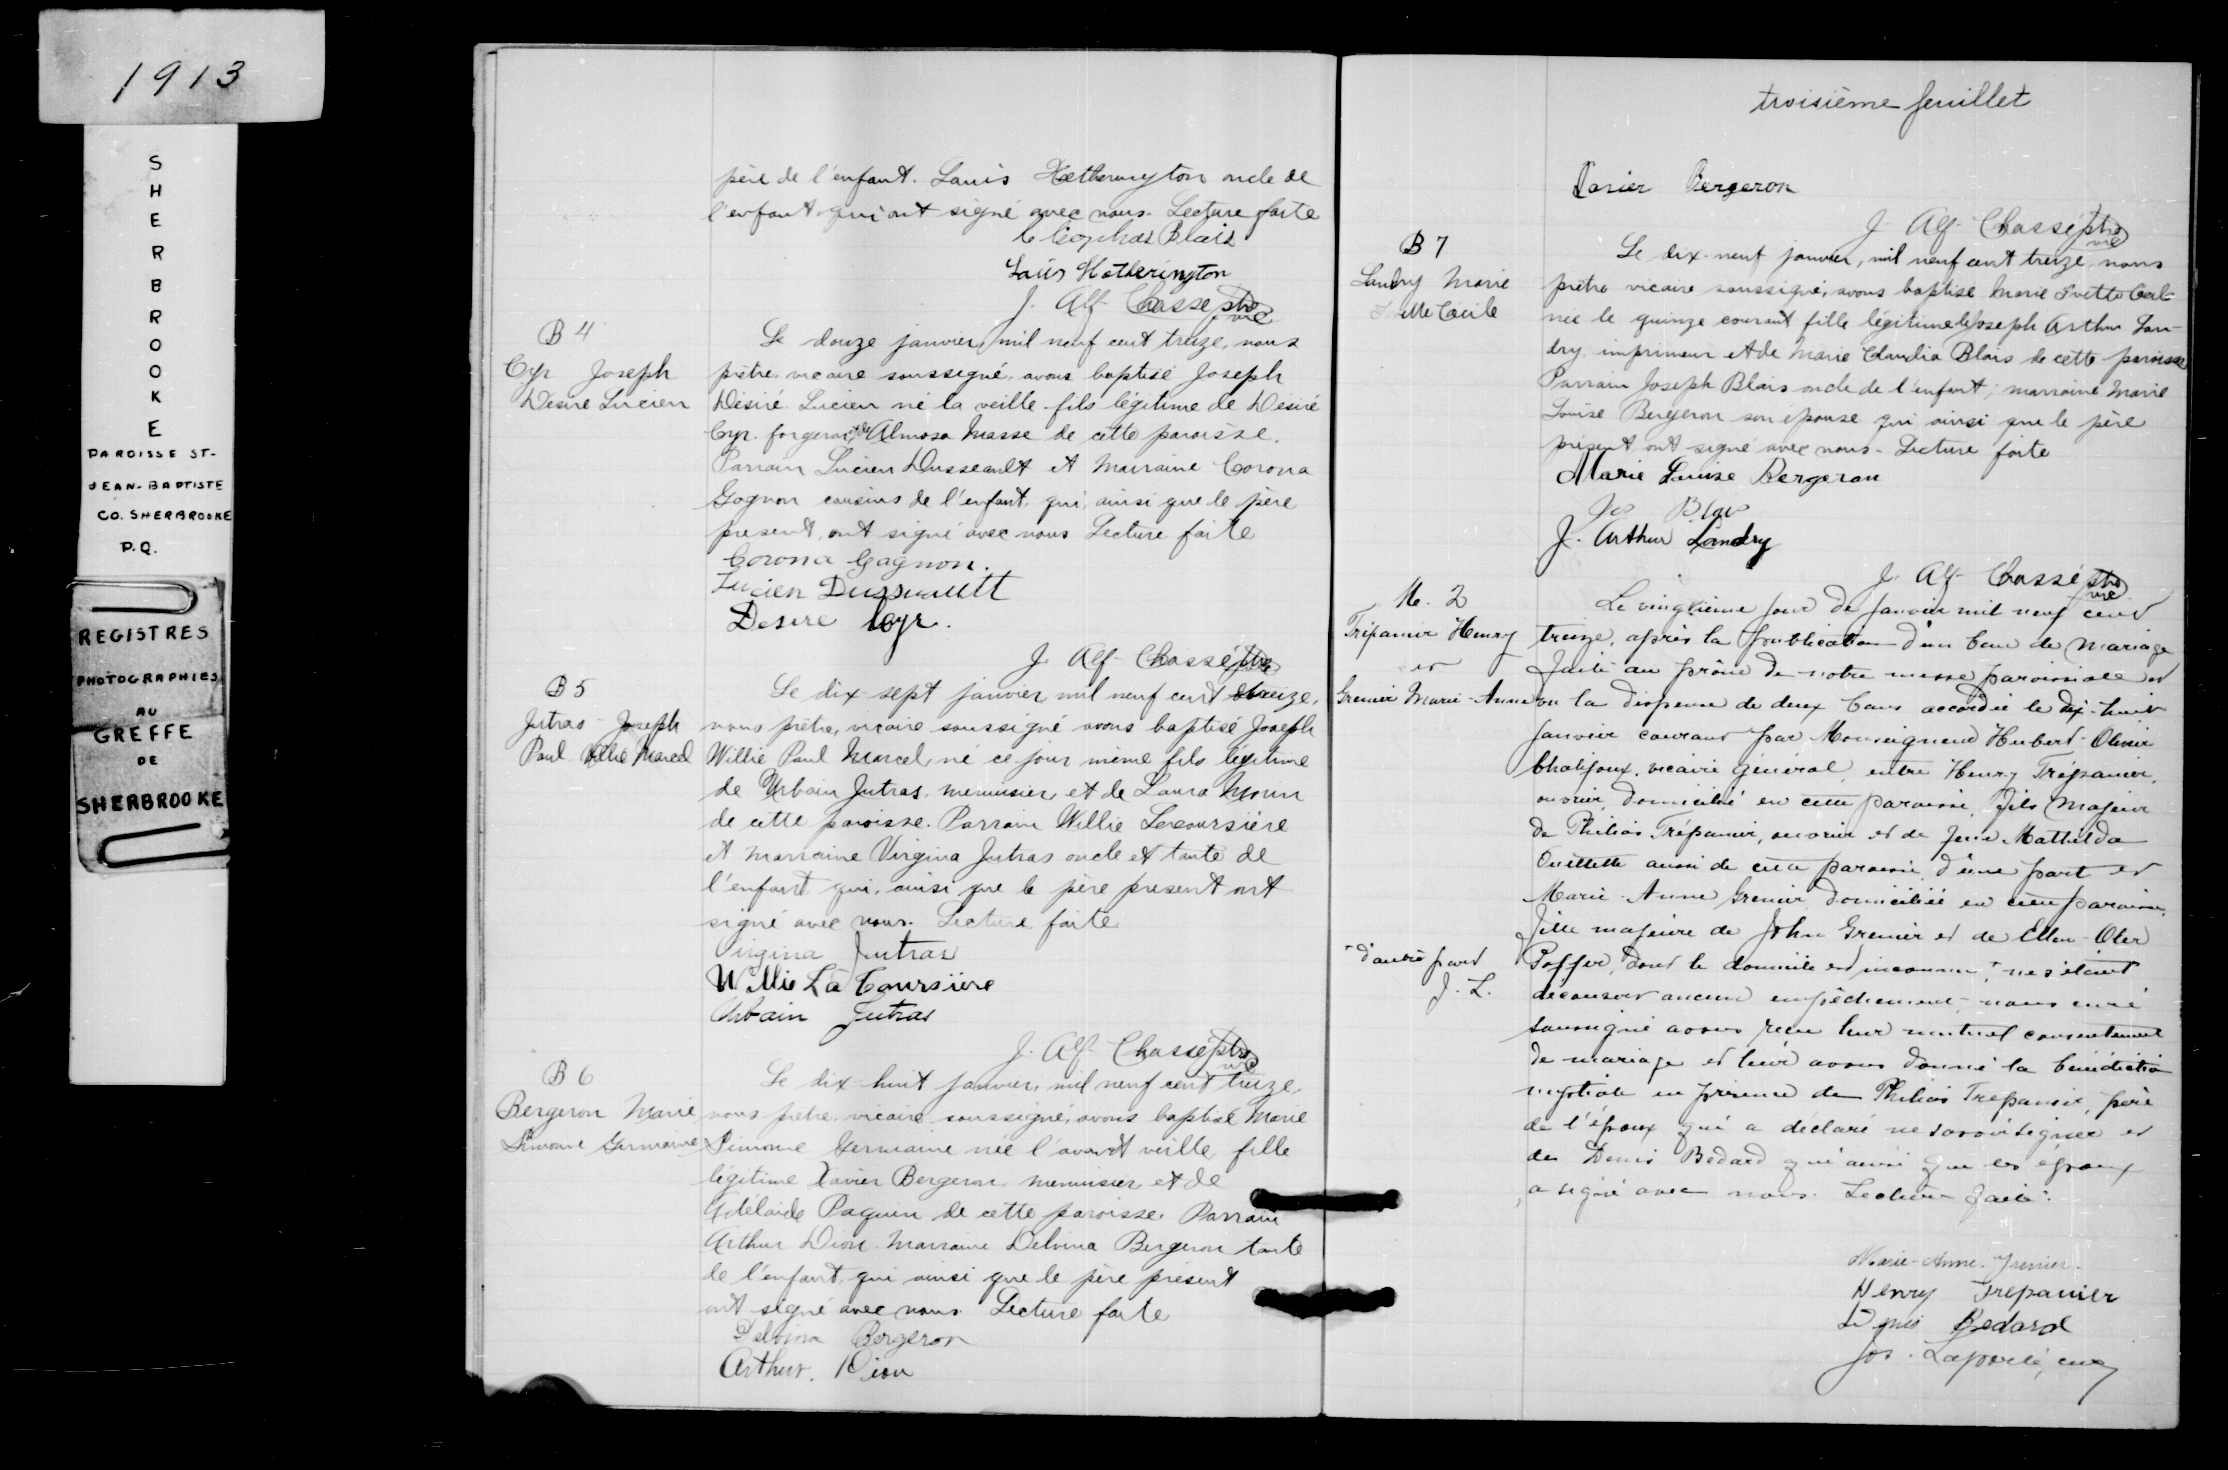 1913
SHERBROOKE
PAROISSE ST-
JEAN-BAPTISTE
CO. SHERBROOKE
P.Q.
REGISTRES
PHOTOGRAPHIES
AU
GREFFE
DE
SHERBROOKE
père de l'enfant. Louis Hetherington oncle de
l'enfant qui ont signé avec nous. Lecture faite
Cléophas Blais
Louis Hetherington
J. Alf. Chassé ptre vic
B 4
Cyr Joseph
Désiré Lucien
Le douze janvier, mil neuf cent treize, nous
prêtre vicaire soussigné, avons baptisé Joseph
Désiré Lucien né la veille fils légitime de Désiré
Cyr. forgeron, et de Almosa Masse de cette paroisse.
Parrain Lucien Dusseault et marraine Corona
Gagnon cousins de l'enfant, qui, ainsi que le père
present, ont signé avec nous Lecture faite
Corona Gagnon.
Lucien Dussault
Desire Cyr.
J. Alf. Chassé ptre
B 5
Jutras Joseph
Paul Willie Marcel
Le dix sept janvier mil neuf cent treize,
nous prêtre, vicaire soussigné avons baptisé Joseph
Willie Paul Marcel, né ce jour même fils légitime
de Urbain Jutras, menuisier et de Laura Morin
de cette paroisse. Parrain Willie Lecoursière
et marraine Virgina Jutras oncle et tante de
l'enfant qui, ainsi que le père present ont
signé avec nous. Lecture faite
Virgina Jutras
Willie La Coursiere
Urbain Jutras
J. Alf. Chassé ptre vic
B 6
Bergeron Marie
Simone Germaine
Le dix huit janvier, mil neuf cent treize,
nous prêtre vicaire soussigné, avons baptisé Marie
Simone Germaine née l'avant veille fille
légitime Xavier Bergeron menuisier et de
Adélaide Paquin de cette paroisse. Parrain
Arthur Dion. Marraine Delvina Bergeron tante
de l'enfant, qui ainsi que le père présent
ont signé avec nous Lecture faite
Delvina Bergeron
Arthur. Dion
troisième feuillet
Xavier Bergeron
J. Alf. Chassé ptre vic
B 7
Landry Marie
Cécile
Le dix-neuf janvier, mil neuf cent treize, nous
prêtre vicaire soussigné, avons baptisé Marie Ivette
née le quinze courant fille légitime de Joseph Arthur Lan-
dry, imprimeur et de Marie Claudia Blais de cette paroisse
Parrain Joseph Blais oncle de l'enfant; marraine Marie
Louise Bergeron son epouse qui ainsi que le père
présent ont signé avec nous. Lecture faite
Marie Louise Bergeron
Jos Blais
J. Arthur Landry
J. Alf. Chassé ptre vic
M. 2
Trépanier Henry
et
Grenier Marie-Anne
Le vingtième jour de Janvier mil neuf cent
treize, après la publication d'un ban de mariage
faite au prône de notre messe paroissiale et
vu la dispense de deux bans accordée le dix-huit
Janvier courant par Monseigneur Hubert-Olivier
Chalifoux, vicaire général, entre Henry Trépanier,
ouvrier, domicilié en cette paroisse, fils majeur
de Philias Trépanier, ouvrier et de feue Mathilda
Ouellette aussi de cette paroisse d'une part et
Marie-Anne Grenier domiciliée en cette paroisse,
fille majeure de John Grenier et de Ellen
dont le domicile est inconnu, + ne s'étant
+ d'autre part
J. L.
découvert aucun empêchement, nous curé
soussigné avons reçu leur mutuel consentement
de mariage et leur avons donné la bénédiction
nuptiale en présence de Philias Trépanier, père
de l'époux qui a déclaré ne savoir signer et
de Denis Bédard qui ainsi que les époux
a signé avec nous. Lecture faite.
Marie-Anne Grenier.
Henry Trepanier
Denis Bedard
Jos. Laporte, curé